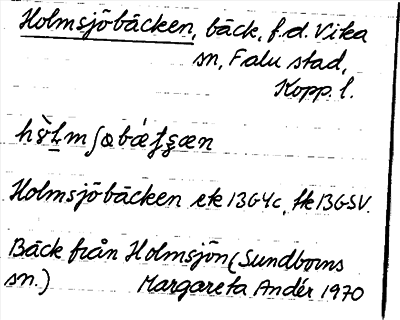 Holmsjöbäcken, bäck, f.d. Vika
sn, Falu stad,
Kopp. l.
Holmsjöbäcken ek 13G4c, tk 13GSV.
Bäck från Holmsjön (Sundborns
sn.) Margareta Andér 1970